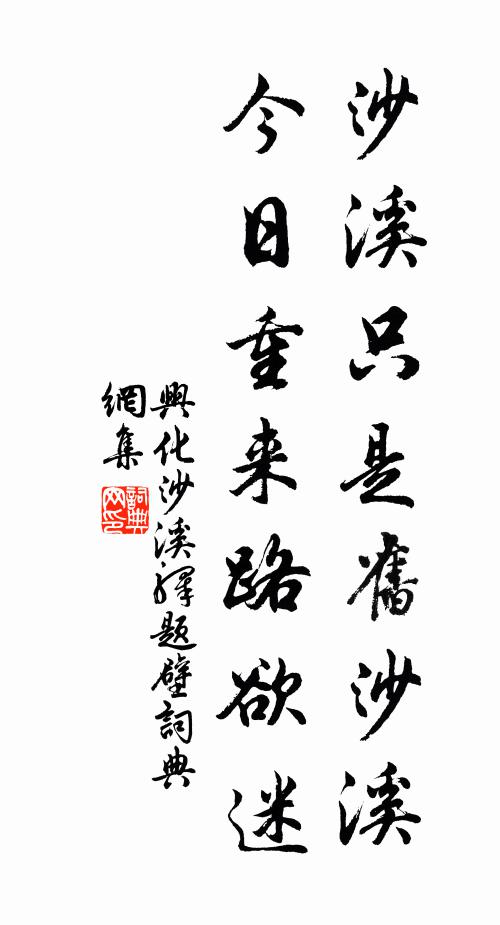 沙溪只是舊沙溪
今日重来路欲迷
興化沙溪驛題壁詞典
網集
詞典网印